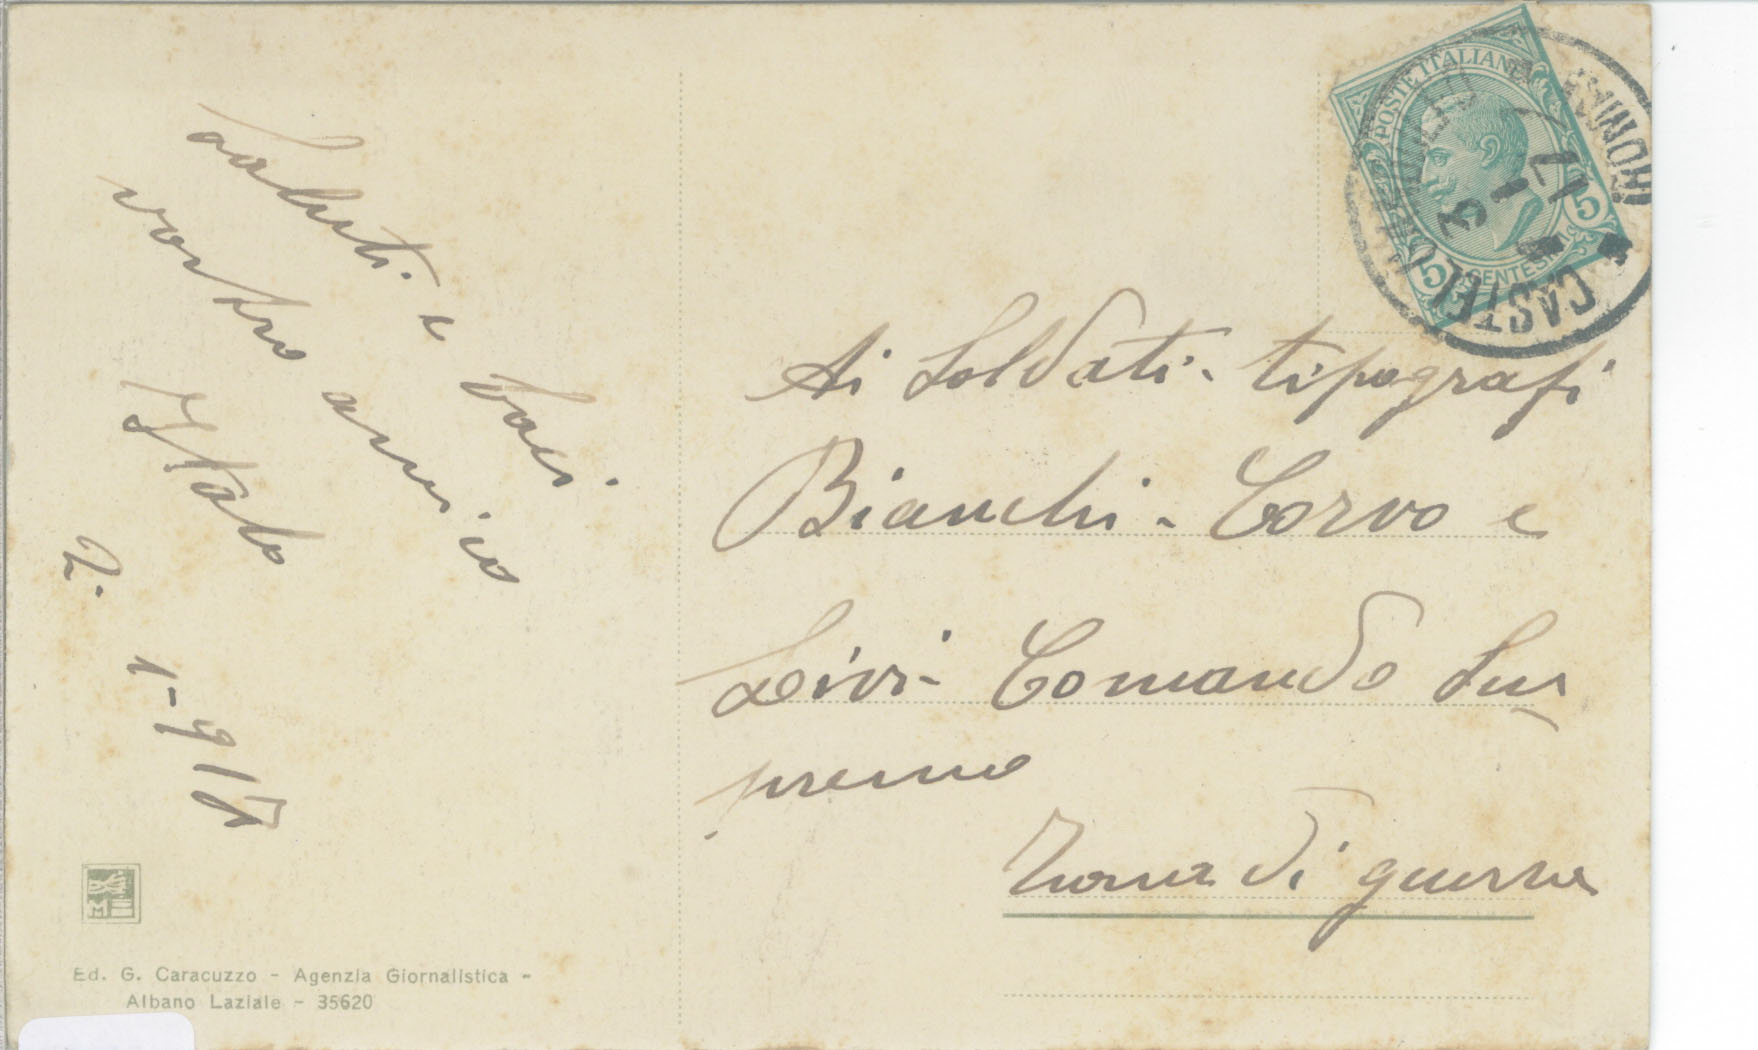 Saluti e baci.
vostro amico
Italo
2. 1-917
Ed. G. Caracuzzo - Agenzia Giornalistica -
Albano Laziale - 35620
POSTE ITALIANE
5 CENTESIMI 5
CASTEL
(ROMA)
3 1 17
Ai Soldati - tipografi
Bianchi - Corvo e
Livi - Comando Su
premo
Zona di guerra